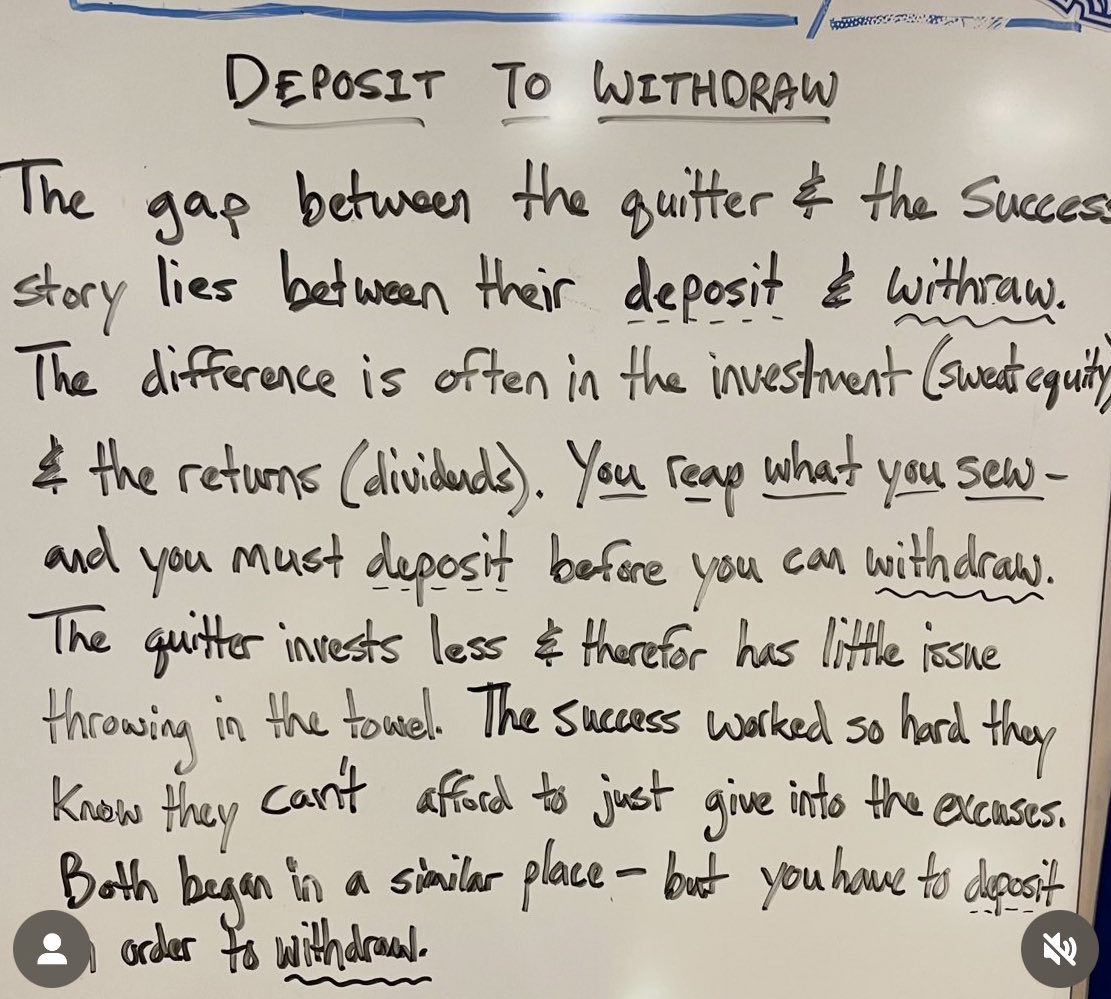 DEPOSIT TO WITHDRAW
The gap between the quitter & the Success
story lies between their deposit & withraw.
The difference is often in the investment (sweat equity)
& the returns (dividends). You reap what you sew -
and you must deposit before you can withdraw.
The quitter invests less & therefor has little issue
throwing in the towel. The success worked so hard they
know they can't afford to just give into the excuses.
Both began in a similar place - but you have to deposit
order to withdraw.